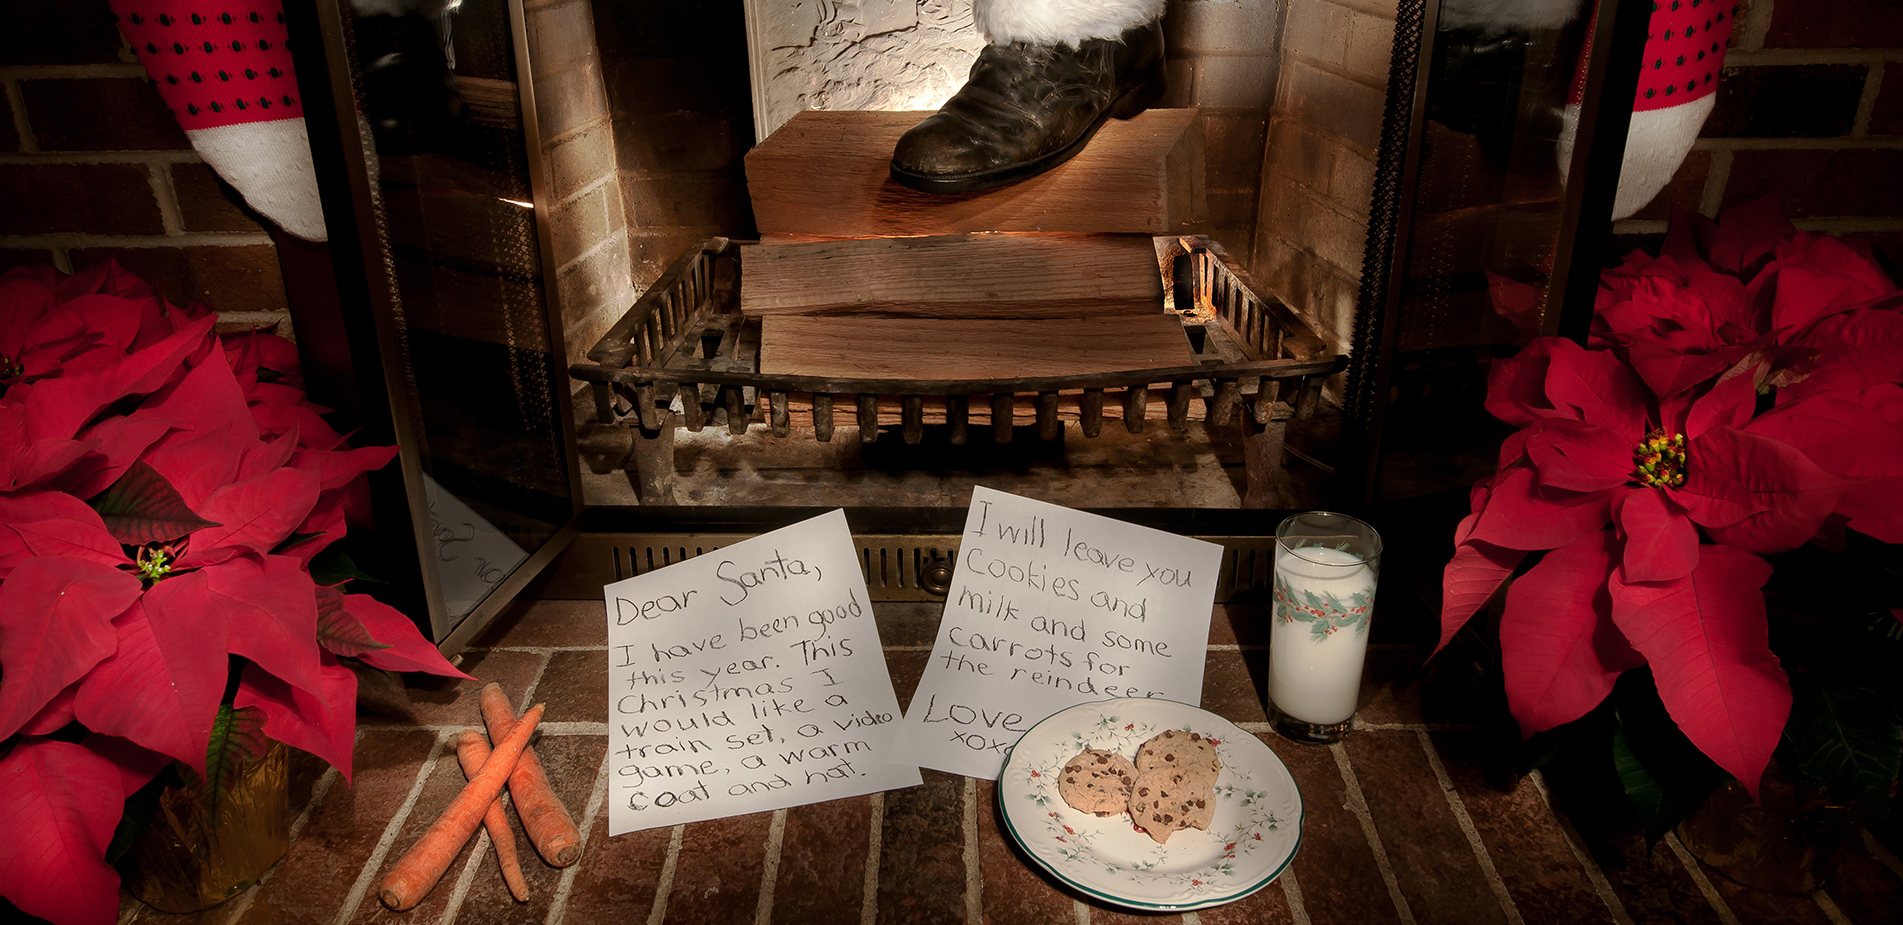 Dear Santa,
I have been good
this year. This
Christmas I
would like a
train set, a video
game, a warm
coat and hat.
I will leave you
Cookies and
milk and some
carrots for
the reindeer
Love
xoxo